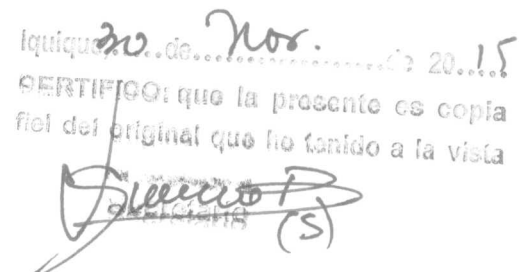 Iquique, 30 de Nov. de 2015
CERTIFICO: que la presente es copia
fiel del original que he tenido a la vista
(S)